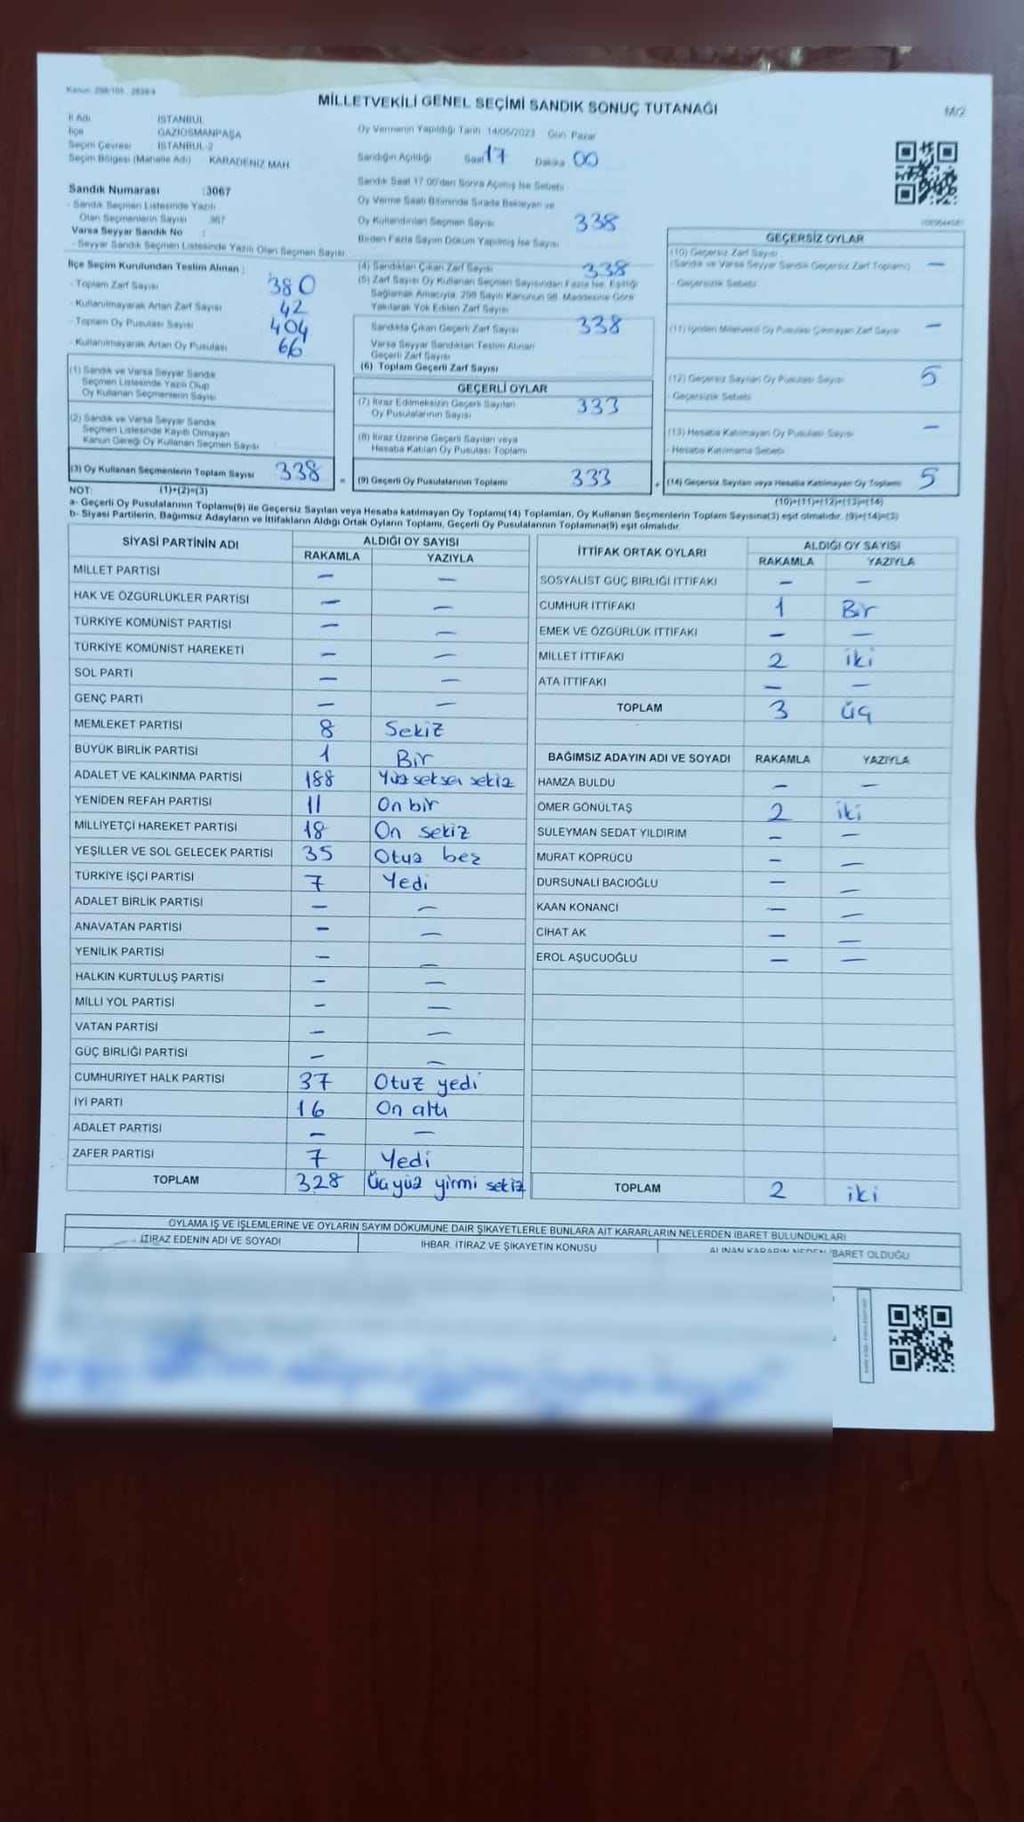 Kanun: 298/105 2839/4
MİLLETVEKİLİ GENEL SEÇİMİ SANDIK SONUÇ TUTANAĞI
M/2
İl Adı İSTANBUL
İlçe GAZİOSMANPAŞA
Seçim Çevresi İSTANBUL-2
Seçim Bölgesi (Mahalle Adı) KARADENİZ MAH.
Oy Vermenin Yapıldığı Tarih 14/05/2023 Gün Pazar
Sandığın Açıldığı Saat 17 Dakika 00
Sandık Saat 17:00'den Sonra Açılmış İse Sebebi
Oy Verme Saati Bitiminde Sırada Bekleyen ve
Oy Kullandırılan Seçmen Sayısı 338
Birden Fazla Sayım Döküm Yapılmış İse Sayısı
Sandık Numarası :3067
- Sandık Seçmen Listesinde Yazılı
Olan Seçmenlerin Sayısı 367
Varsa Seyyar Sandık No :
- Seyyar Sandık Seçmen Listesinde Yazılı Olan Seçmen Sayısı
İlçe Seçim Kurulundan Teslim Alınan :
- Toplam Zarf Sayısı 380
- Kullanılmayarak Artan Zarf Sayısı 42
- Toplam Oy Pusulası Sayısı 404
- Kullanılmayarak Artan Oy Pusulası 66
(1) Sandık ve Varsa Seyyar Sandık
Seçmen Listesinde Yazılı Olup
Oy Kullanan Seçmenlerin Sayısı
(2) Sandık ve Varsa Seyyar Sandık
Seçmen Listesinde Kayıtlı Olmayan
Kanun Gereği Oy Kullanan Seçmen Sayısı
(3) Oy Kullanan Seçmenlerin Toplam Sayısı 338
(1)+(2)=(3)
(4) Sandıktan Çıkan Zarf Sayısı 338
(5) Zarf Sayısı Oy Kullanan Seçmen Sayısından Fazla İse, Eşitliği
Sağlamak Amacıyla, 298 Sayılı Kanunun 98. Maddesine Göre
Yakılarak Yok Edilen Zarf Sayısı
Sandıkta Çıkan Geçerli Zarf Sayısı 338
Varsa Seyyar Sandıktan Teslim Alınan
Geçerli Zarf Sayısı
(6) Toplam Geçerli Zarf Sayısı
GEÇERLİ OYLAR
(7) İtiraz Edilmeksizin Geçerli Sayılan
Oy Pusulalarının Sayısı 333
(8) İtiraz Üzerine Geçerli Sayılan veya
Hesaba Katılan Oy Pusulası Toplamı
= (9) Geçerli Oy Pusulalarının Toplamı 333
GEÇERSİZ OYLAR
(10) Geçersiz Zarf Sayısı
(Sandık ve Varsa Seyyar Sandık Geçersiz Zarf Toplamı) —
- Geçersizlik Sebebi
(11) İçinden Milletvekili Oy Pusulası Çıkmayan Zarf Sayısı —
(12) Geçersiz Sayılan Oy Pusulası Sayısı 5
- Geçersizlik Sebebi
(13) Hesaba Katılmayan Oy Pusulası Sayısı —
- Hesaba Katılmama Sebebi
+ (14) Geçersiz Sayılan veya Hesaba Katılmayan Oy Toplamı 5
(10)+(11)+(12)+(13)=(14)
NOT:
a- Geçerli Oy Pusulalarının Toplamı(9) ile Geçersiz Sayılan veya Hesaba katılmayan Oy Toplamı(14) Toplamları, Oy Kullanan Seçmenlerin Toplam Sayısına(3) eşit olmalıdır. (9)+(14)=(3)
b- Siyasi Partilerin, Bağımsız Adayların ve İttifakların Aldığı Ortak Oyların Toplamı, Geçerli Oy Pusulalarının Toplamına(9) eşit olmalıdır.
SİYASİ PARTİNİN ADI ALDIĞI OY SAYISI
RAKAMLA YAZIYLA
MİLLET PARTİSİ — —
HAK VE ÖZGÜRLÜKLER PARTİSİ — —
TÜRKİYE KOMÜNİST PARTİSİ — —
TÜRKİYE KOMÜNİST HAREKETİ — —
SOL PARTİ — —
GENÇ PARTİ — —
MEMLEKET PARTİSİ 8 Sekiz
BÜYÜK BİRLİK PARTİSİ 1 Bir
ADALET VE KALKINMA PARTİSİ 188 Yüz seksen sekiz
YENİDEN REFAH PARTİSİ 11 On bir
MİLLİYETÇİ HAREKET PARTİSİ 18 On sekiz
YEŞİLLER VE SOL GELECEK PARTİSİ 35 Otuz beş
TÜRKİYE İŞÇİ PARTİSİ 7 Yedi
ADALET BİRLİK PARTİSİ — —
ANAVATAN PARTİSİ — —
YENİLİK PARTİSİ — —
HALKIN KURTULUŞ PARTİSİ — —
MİLLİ YOL PARTİSİ — —
VATAN PARTİSİ — —
GÜÇ BİRLİĞİ PARTİSİ — —
CUMHURİYET HALK PARTİSİ 37 Otuz yedi
İYİ PARTİ 16 On altı
ADALET PARTİSİ — —
ZAFER PARTİSİ 7 Yedi
TOPLAM 328 Üçyüz yirmi sekiz
İTTİFAK ORTAK OYLARI ALDIĞI OY SAYISI
RAKAMLA YAZIYLA
SOSYALİST GÜÇ BİRLİĞİ İTTİFAKI — —
CUMHUR İTTİFAKI 1 Bir
EMEK VE ÖZGÜRLÜK İTTİFAKI — —
MİLLET İTTİFAKI 2 iki
ATA İTTİFAKI — —
TOPLAM 3 üç
BAĞIMSIZ ADAYIN ADI VE SOYADI RAKAMLA YAZIYLA
HAMZA BULDU — —
ÖMER GÖNÜLTAŞ 2 iki
SÜLEYMAN SEDAT YILDIRIM — —
MURAT KÖPRÜCÜ — —
DURSUNALİ BACIOĞLU — —
KAAN KONANCI — —
CİHAT AK — —
EROL AŞUCUOĞLU — —
TOPLAM 2 iki
OYLAMA İŞ VE İŞLEMLERİNE VE OYLARIN SAYIM DÖKÜMÜNE DAİR ŞİKAYETLERLE BUNLARA AİT KARARLARIN NELERDEN İBARET BULUNDUKLARI
İTİRAZ EDENİN ADI VE SOYADI İHBAR, İTİRAZ VE ŞİKAYETİN KONUSU ALINAN KARARIN NEDEN İBARET OLDUĞU